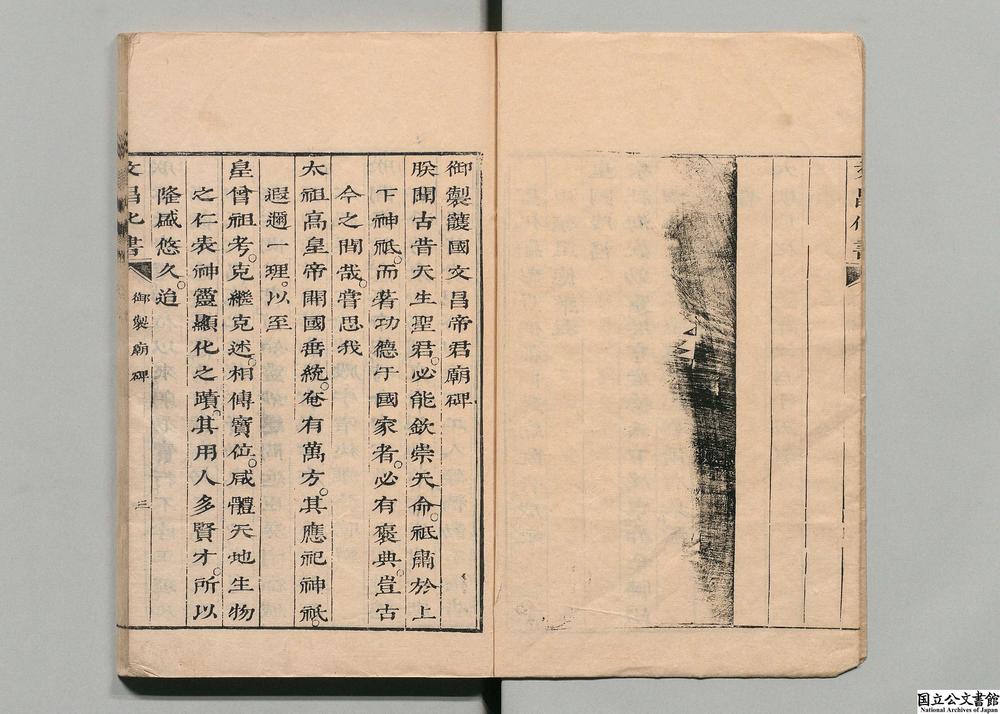 御製護國文昌帝君廟碑
朕聞古昔天生聖君。必能欽崇天命。祇肅於上
下神祇。而著功德于國家者。必有褒典。豈古
今之間哉。嘗思我
太祖高皇帝開國垂統。奄有萬方。其應祀神祇。
遐邇一理。以至
皇曾祖考。克繼克述。相傳寶位。咸體天地生物
之仁。表神靈顯化之蹟。其用人多賢才。所以
隆盛悠久。迨
文昌化書
御製廟碑
三
国立公文書館
National Archives of Japan